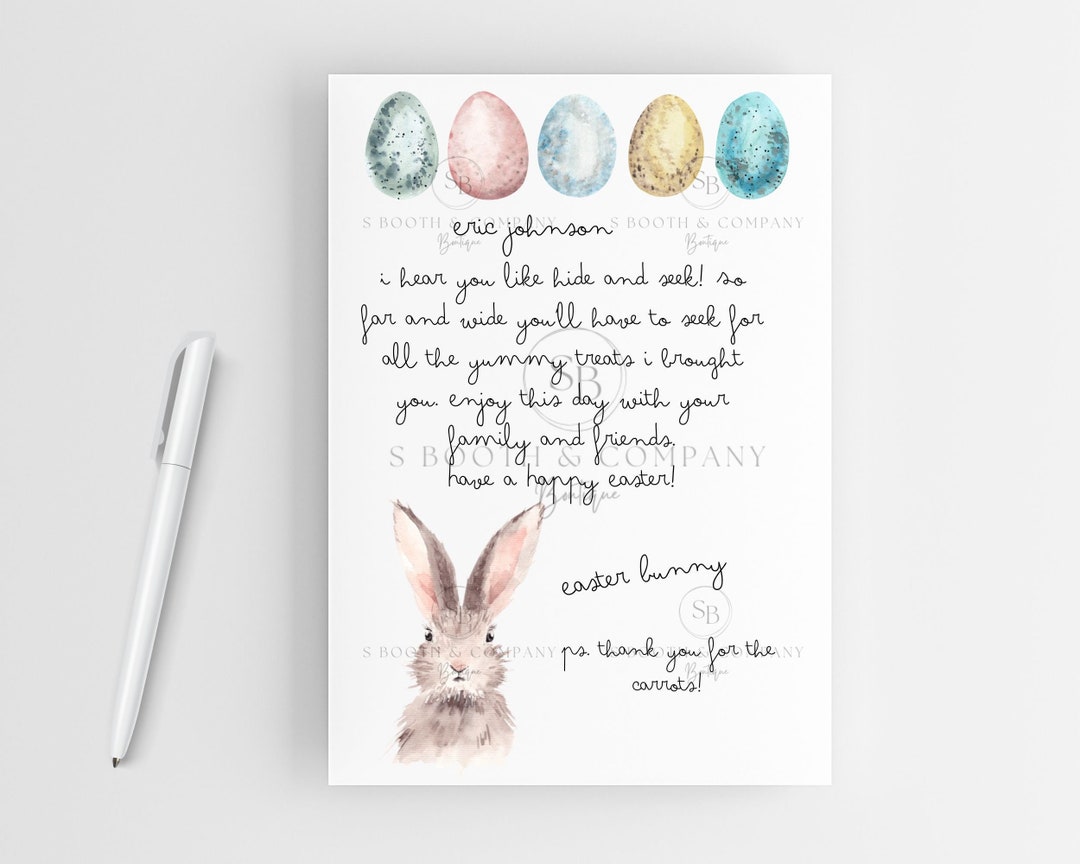 SB SB
S BOOTH & COMPANY S BOOTH & COMPANY
Boutique Boutique
eric johnson
i hear you like hide and seek! so
far and wide you'll have to seek for
all the yummy treats i brought
you. enjoy this day with your
family and friends.
have a happy easter!
SB
S BOOTH & COMPANY
Boutique
easter bunny
SB SB
S BOOTH & COMPANY S BOOTH & COMPANY
Boutique Boutique
ps. thank you for the
carrots!